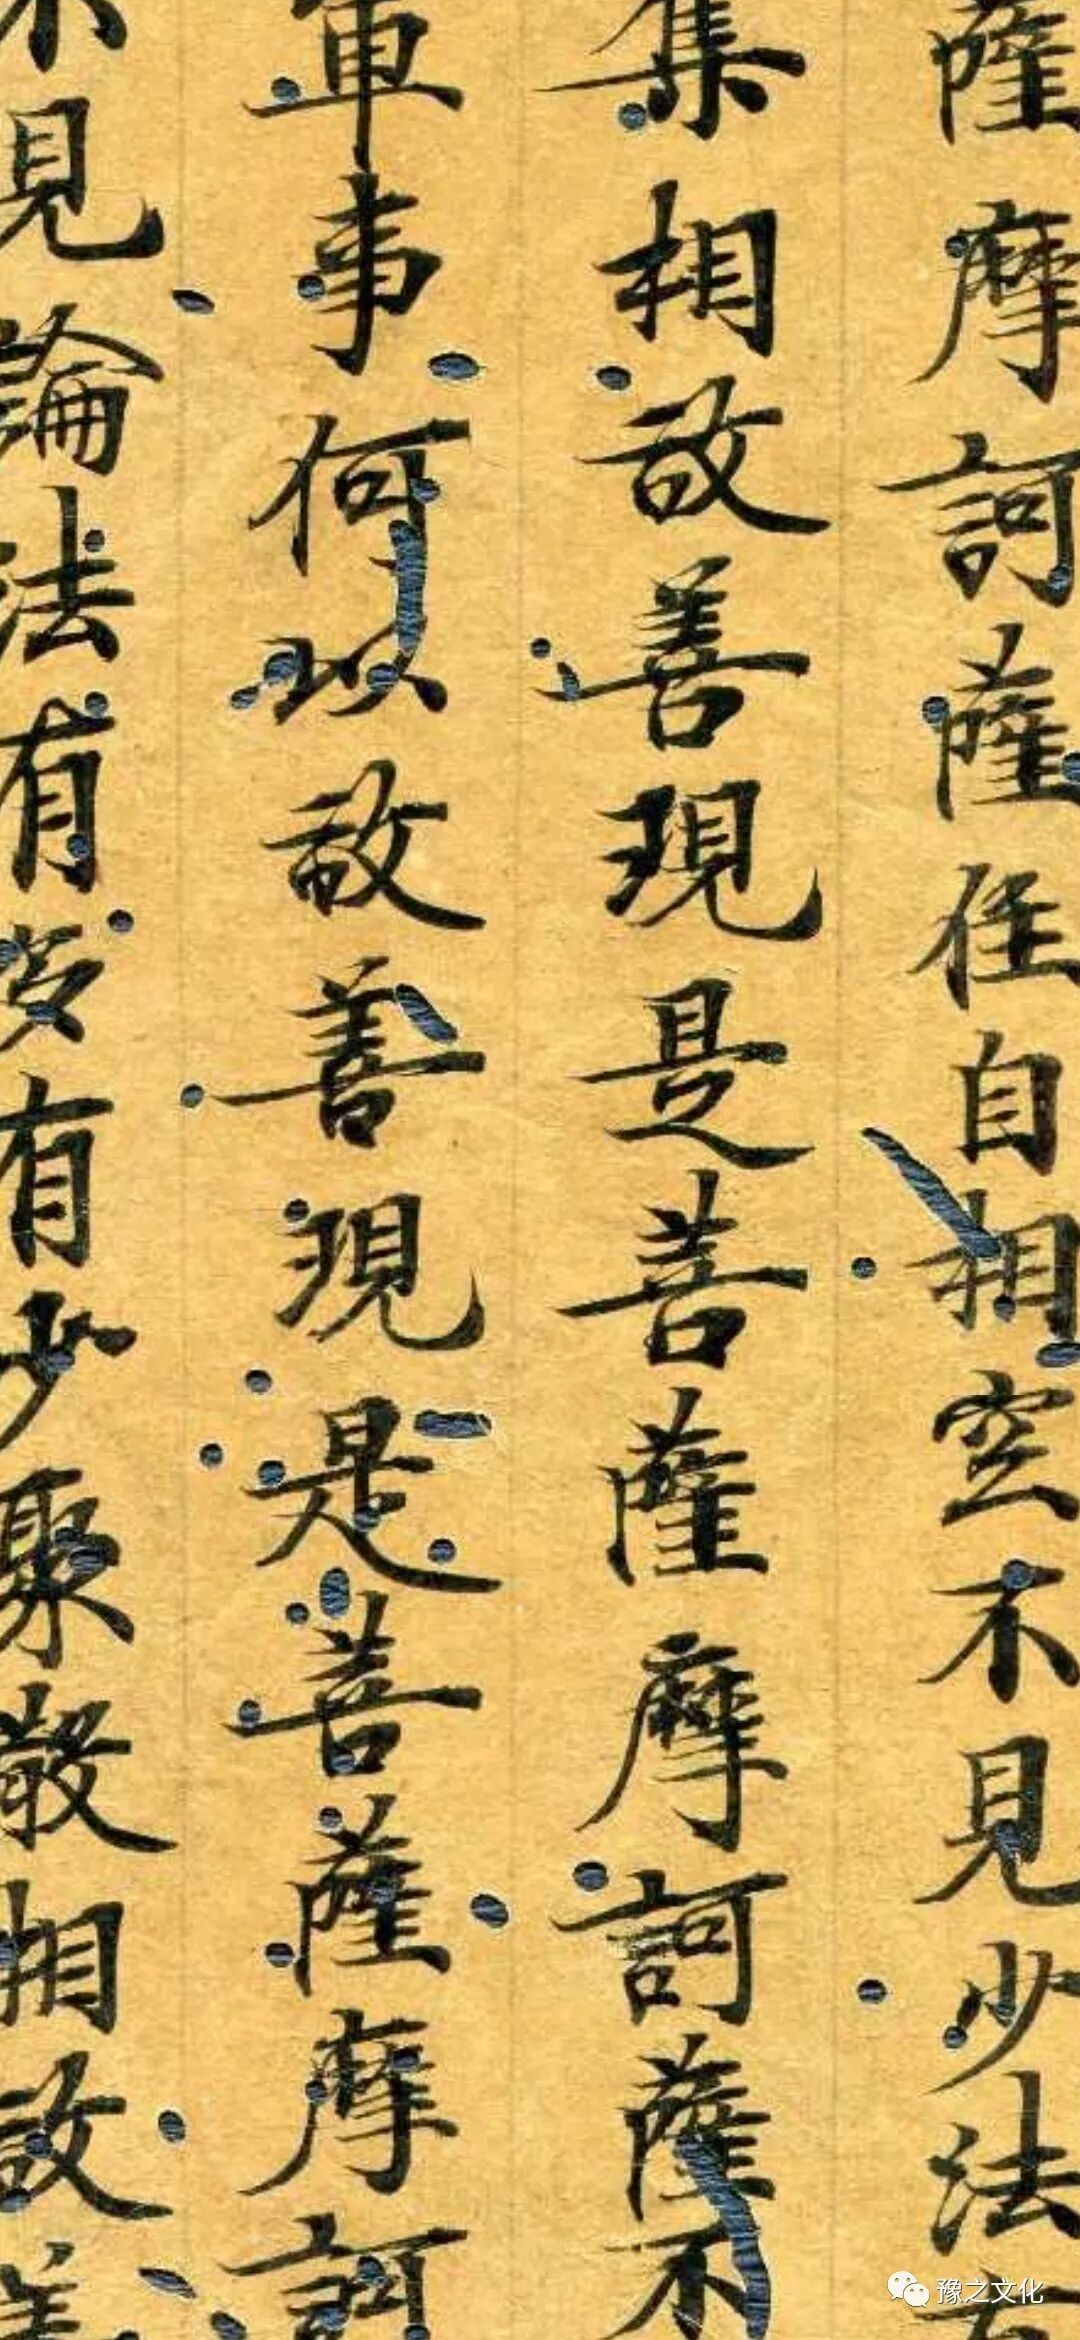 薩摩訶薩住自相空不見少法有
集相故善現是菩薩摩訶薩不
軍事何以故善現是菩薩摩訶
不見論法有多有少聚散相故善
豫之文化